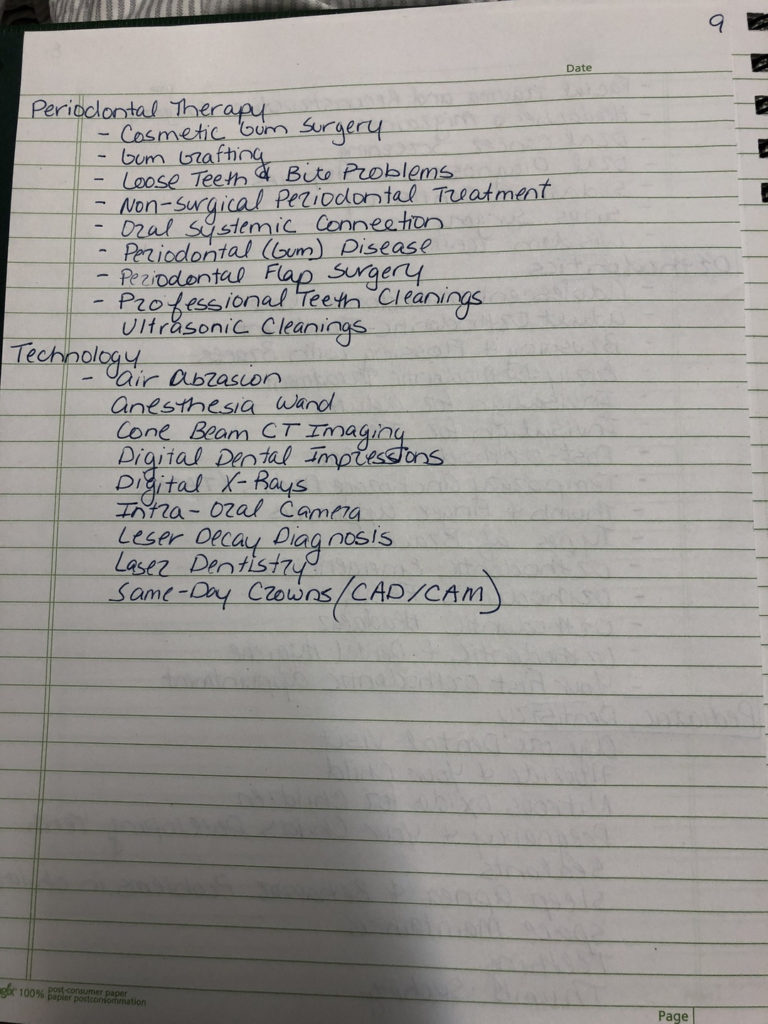 9
Date
Periodontal Therapy
- Cosmetic Gum Surgery
- Gum Grafting
- Loose Teeth & Bite Problems
- Non-surgical Periodontal Treatment
- Oral Systemic Connection
- Periodontal (Gum) Disease
- Periodontal Flap Surgery
- Professional Teeth Cleanings
Ultrasonic Cleanings
Technology
- Air Abrasion
Anesthesia Wand
Cone Beam CT Imaging
Digital Dental Impressions
Digital X-Rays
Intra-Oral Camera
Laser Decay Diagnosis
Laser Dentistry
Same-Day Crowns (CAD/CAM)
100% post-consumer paper
papier postconsommation
Page